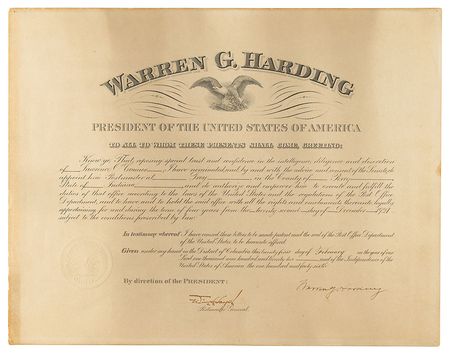 WARREN G. HARDING
PRESIDENT OF THE UNITED STATES OF AMERICA
TO ALL TO WHOM THESE PRESENTS SHALL COME, GREETING:
Know ye That, reposing special trust and confidence in the intelligence, diligence and discretion
of I have nominated by and with the advice and consent of the Senate, do
appoint him Postmaster at Gary in the County of
State of Indiana and do authorize and empower him to execute and fulfill the
duties of that office according to the laws of the United States and the regulations of the Post Office
Department, and to have and to hold the said office with all the rights and emoluments thereunto legally
appertaining for and during the term of four years from the day of December 1921
subject to the conditions prescribed by law.
In testimony whereof I have caused these letters to be made patent and the seal of the Post Office Department
of the United States to be hereunto affixed.
Given under my hand in the District of Columbia this twenty first day of February in the year of our
Lord one thousand nine hundred and twenty two and of the Independence of the
United States of America the one hundred and forty sixth
By direction of the PRESIDENT:
Warren G Harding
Postmaster General.